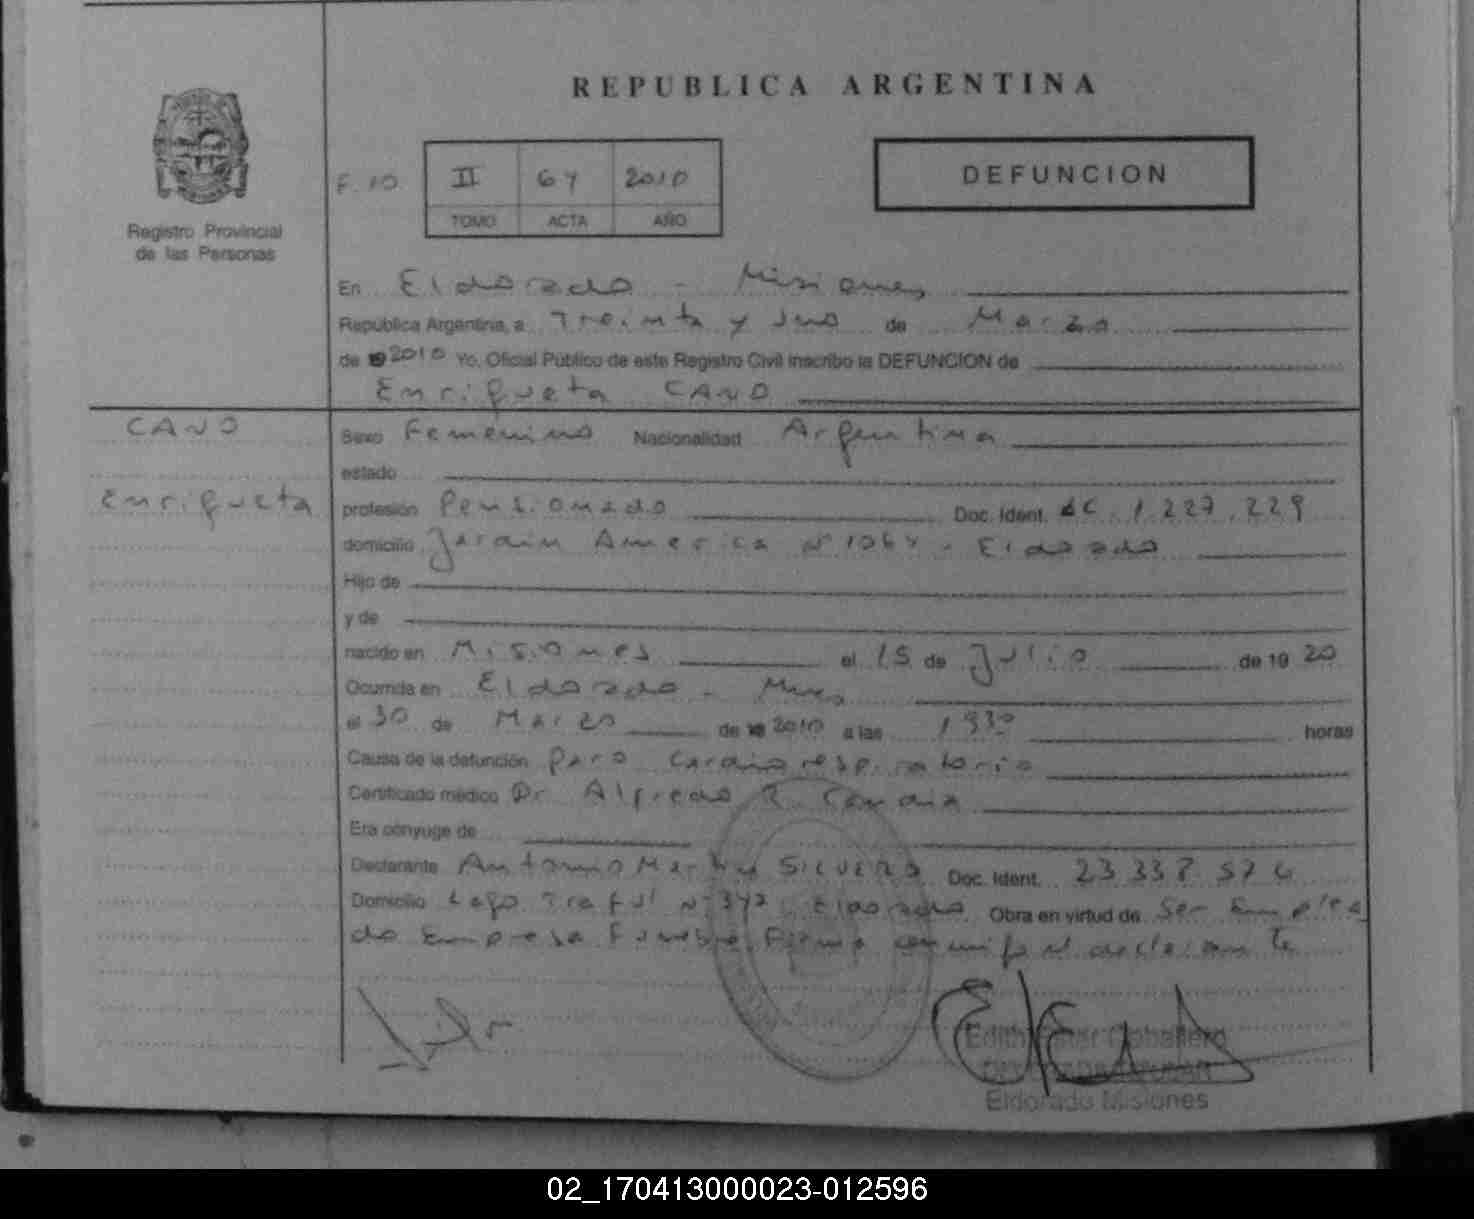 REPUBLICA ARGENTINA
Registro Provincial
de las Personas
F. 10
II 64 2010
TOMO ACTA AÑO
DEFUNCION
En Eldorado - Misiones
Republica Argentina, a Treinta y uno de Marzo
de 19 2010 Yo, Oficial Público de este Registro Civil inscribo la DEFUNCION de
Enriqueta CANO
CANO
Enriqueta
Sexo Femenino Nacionalidad Argentina
estado
profesión Pensionada Doc. Ident. LC. 1.227.229
domicilio Jardin America Nº 1064 - Eldorado
Hijo de
y de
nacido en Misiones el 15 de Julio de 19 20
Ocurrida en Eldorado - Mnes
el 30 de Marzo de 19 2010 a las 1930 horas
Causa de la defunción Paro Cardiorespiratorio
Certificado médico Dr. Alfredo R.
Era cónyuge de
Declarante Antonio Silvero Doc. Ident. 23.337.576
Domicilio Lago Traful Nº 372 Eldorado Obra en virtud de Ser Emplea
do Empresa Funebre. Firma conmigo el declarante
Edith Caballero
Eldorado Misiones
02_170413000023-012596